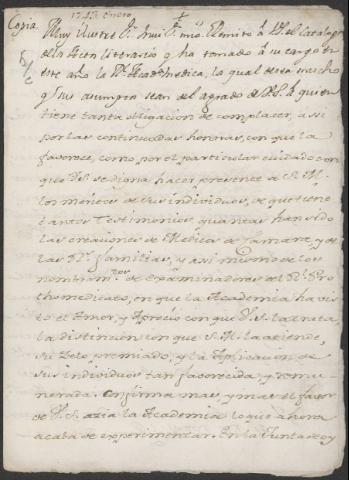 1743 enero
Copia Muy Ilustre Sr. Muy Sr. mio. Remito á V.S. el Catalogo
de la Accion literaria q ha tomado á su cargo en
este año la Rl. Academia Medica, la qual desea mucho
q sus asumptos sean del agrado de V.S. á quien
tiene tanta obligacion de complacer, assi
por las continuadas honras, con que la
favorece, como por el particular cuidado con
que V.S. se digna hacer presente a S. M.
los meritos de sus individuos, de que tiene
tantos testimonios, quantas han sido
las creaciones de Medicos de Camara, y de
las Rs. familias, y assi mismo de los
nombramtos. de examinadores del Rl. Pro
thomedicato, en que la Academia ha vis
to el Amor, y Aprecio con que V. S. la trata,
la distincion con que S. M. la atiende,
su Zelo premiado, y la Aplicacion de
sus individuos tan favorecida, y remu
nerada. Confirma mas, y mas el favor
de V. S. azia la Academia lo que ahora
acaba de experimentar. En la Junta de oy